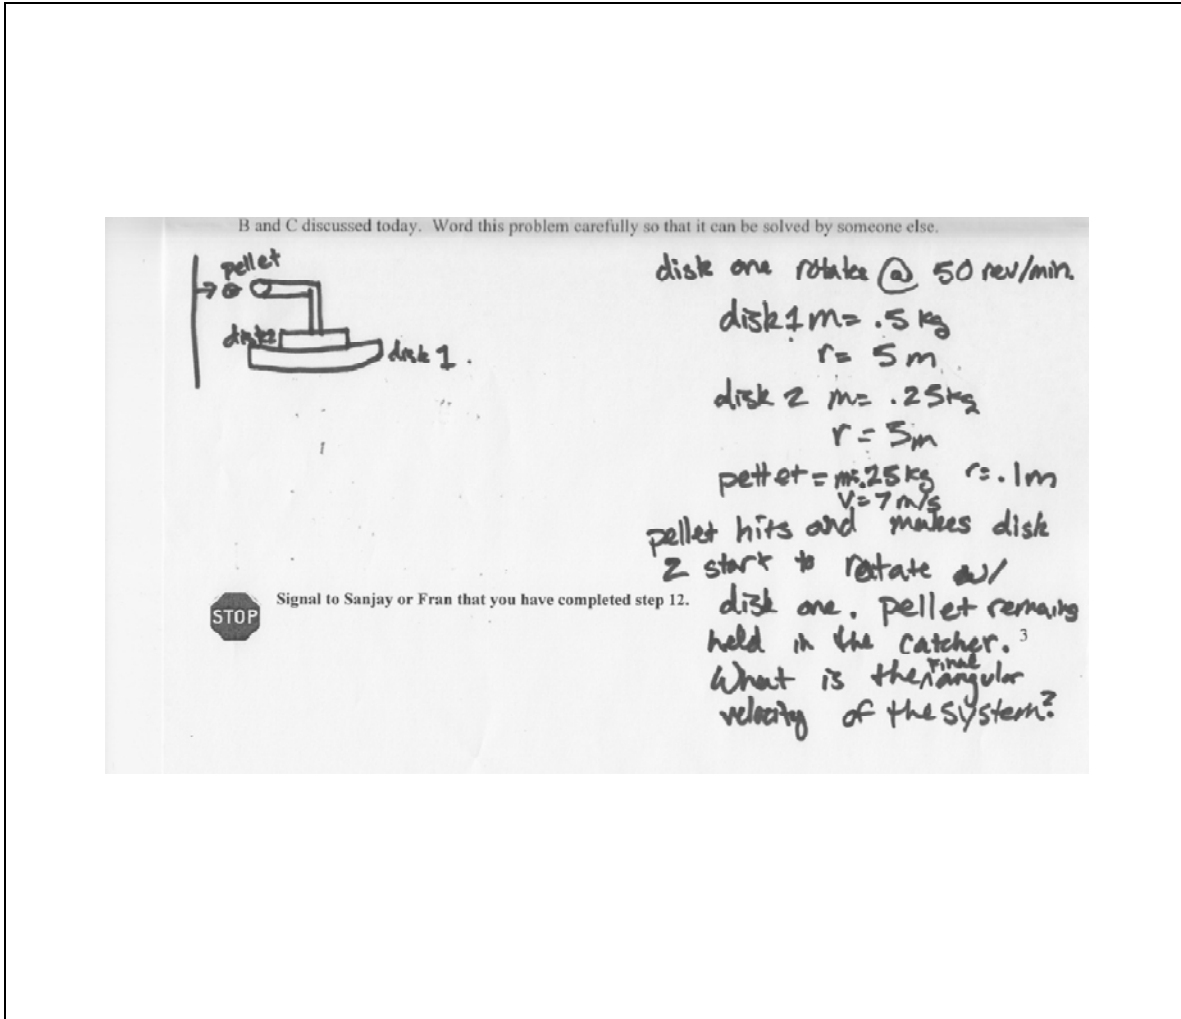 B and C discussed today. Word this problem carefully so that it can be solved by someone else.
pellet
disk2
disk 1.
disk one rotates @ 50 rev/min.
disk 1 m= .5 kg
r= 5 m
disk 2 m= .25kg
r = 5m
pellet = m=.25 kg r=.1m
v=7 m/s
pellet hits and makes disk
2 start to rotate w/
disk one. pellet remains
held in the catcher.
What is the final angular
velocity of the system?
STOP
Signal to Sanjay or Fran that you have completed step 12.
3